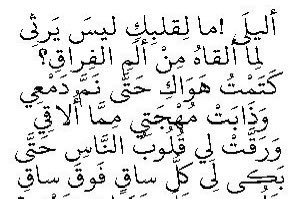 أليلَى !ما لِقلبِكِ ليسَ يَرثِى
لِما ألقاهُ مِنْ ألَمِ الفِراقِ؟
كَتَمْتُ هَوَاكِ حَتَّى نَمَّ دَمْعِي
وَذَابَتْ مُهْجَتِي مِمَّا أُلاقِي
وَرَقَّتْ لِي قُلُوبُ النَّاسِ حَتَّى
بَكى لِي كُلُّ ساقٍ فَوقَ ساقِ